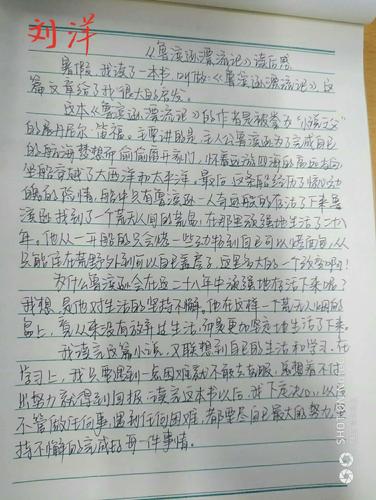 刘洋
《鲁滨逊漂流记》读后感
暑假,我读了一本书,叫做《鲁滨逊漂流记》这
篇文章给了我很大的启发。
这本《鲁滨逊漂流记》的作者是被誉为"小说之父"
的展丹尼尔·笛福。主要讲的是:主人公鲁滨逊为了完成自己
的航海梦想而偷偷离开家们,怀着远游四海的高远志向
坐船穿越了大西洋和太平洋。最后,这条船经历了惊心动
魄的险情,船中只有鲁滨逊一人奇迹般的存活了下来鲁
滨逊找到了一个荒无人间的荒岛,在那里顽强地生活了二十八
年。他从一开始的只会烧一些动物到自己可以烤面包,从
只能住在荒野外到可以自己盖房子,这是多大的一个改变啊!
为什么鲁滨逊会在这二十八年中顽强地存活下来呢?
我想,是他对生活的坚持不懈。他在这样一个荒无人烟的
岛上,看从来没有放弃过生活,而是更加坚定地生活了下来。
我读完这篇小说,又联想到自己的生活和学习。在
学习上,我只要遇到一点困难就不敢去克服,总想着不付
出努力就得到回报。读完这本书以后,我下定决心,以后
不管做任何事,遇到任何困难,都要尽自己最大的努力,坚
持不懈的完成好每一件事情。